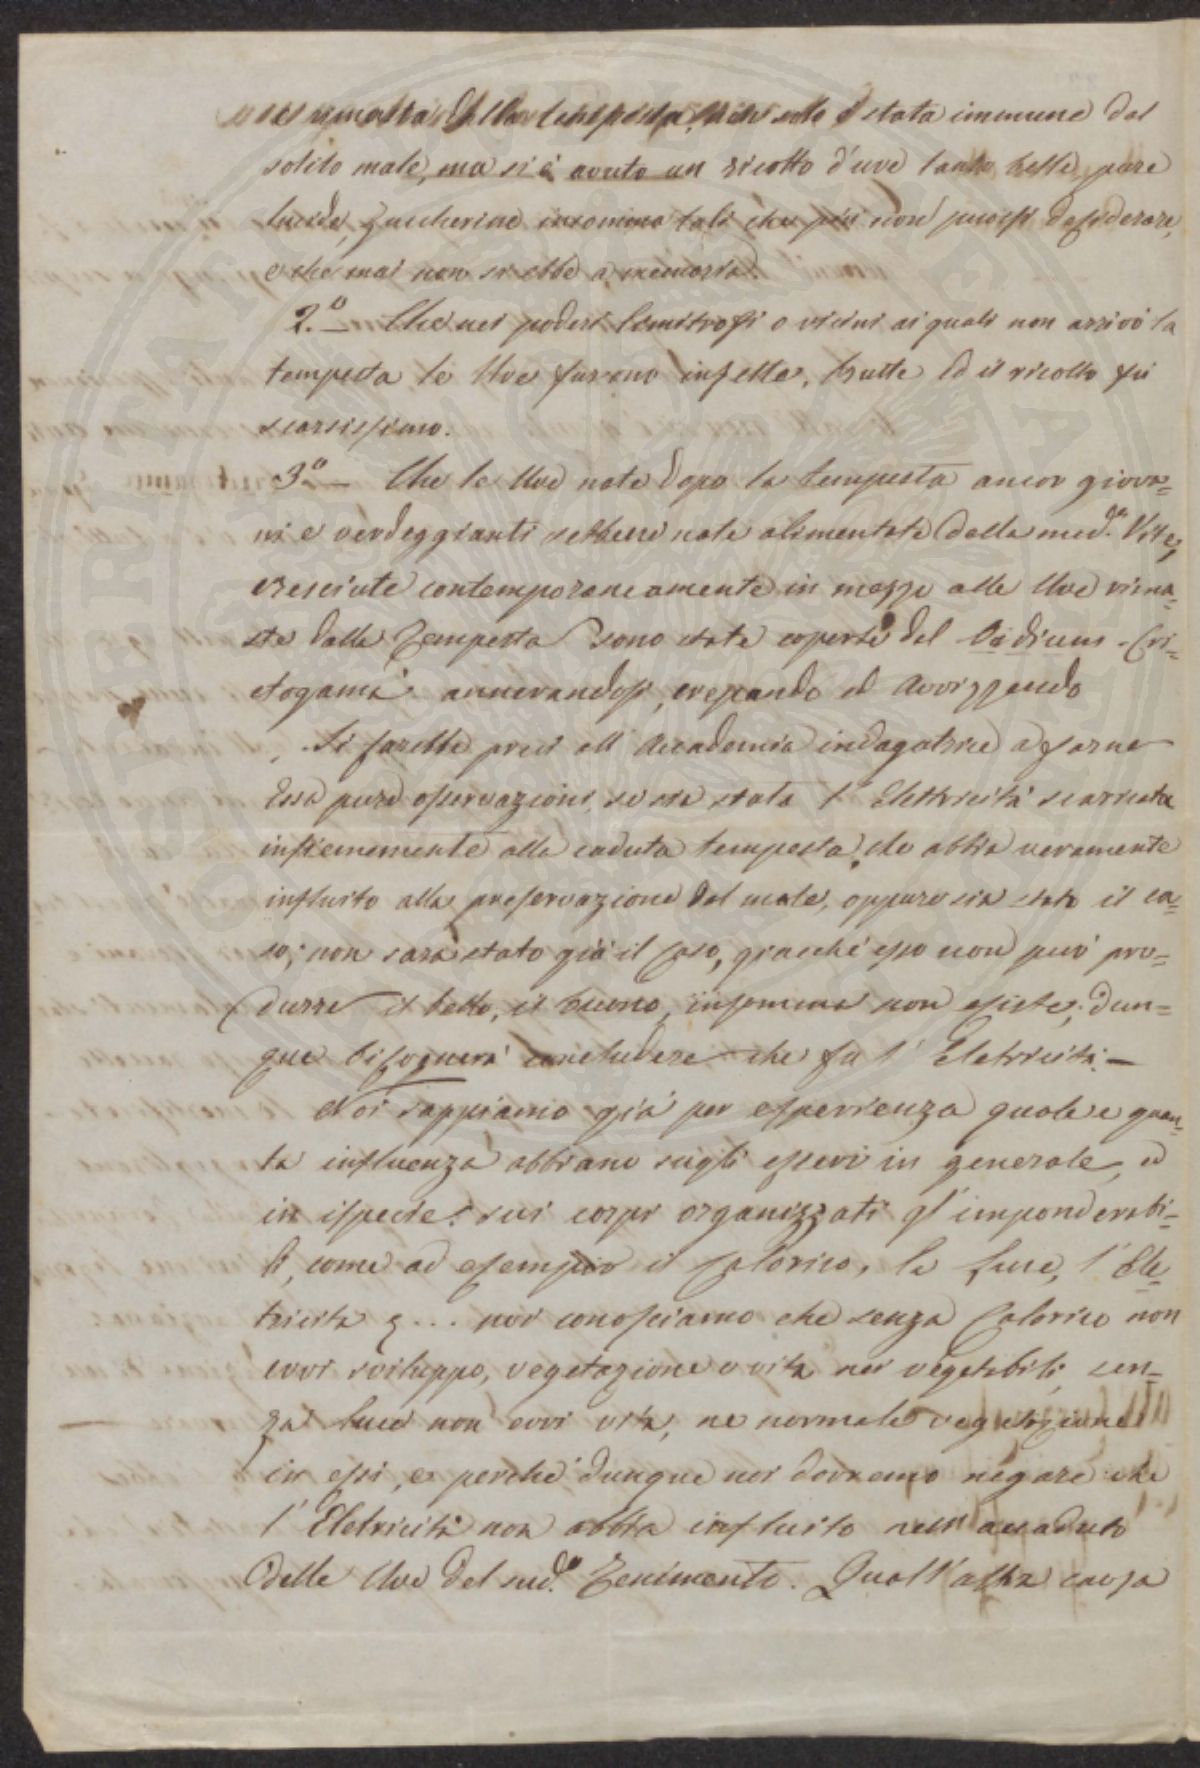 rimasta dalla tempesta. Non solo è stata immune dal
solito male, ma si è avuto un ricolto d'uve tanto belle, pure
lucide, Zuccherine insomma tali che più non puossi desiderare,
e che mai non si ebbe a memoria.
2.º — Che nei poderi limitrofi o vicini ai quali non arrivò la
tempesta le Uve furono infette, brutte ed il ricolto fu
scarsissimo.
3.º — Che le Uve nate dopo la tempesta ancor giova=
ni e verdeggianti sebbene nate alimentate dalla med.ª Vite,
cresciute contemporaneamente in mezzo alle Uve rima=
ste dalla Tempesta sono state coperte del Oidium - Cri=
togama annerandosi, crepando ed avvizzendo
Si farebbe preci all' Accademia indagatrice a farne
Essa pure osservazioni, se sia stata l' Elettricità scaricata
insiememente alla caduta tempesta, che abbia veramente
influito alla preservazione dal male, oppure sia stato il ca=
so; non sarà stato già il Caso, giacchè esso non può pro=
durre il bello, il buono, insomma non esiste; dun=
que bisognerà concludere che fu l' Eletricità. —
Noi sappiamo già per esperienza quale e quan=
ta influenza abbiano sugli esseri in generale, ed
in ispecie sui corpi organizzati gl' imponderabi=
li, come ad esempio il Calorico, la Luce, l' Ele=
tricità &... noi conosciamo che senza Calorico non
evvi sviluppo, vegetazione o vita nei vegetabili, sen=
za luce non evvi vita, ne normale vegetazione
in essi, e perchè dunque noi dovremo negare che
l' Eletricità non abbia influito nell' accaduto
delle Uve del sud.º Tenimento. Quall' altra causa